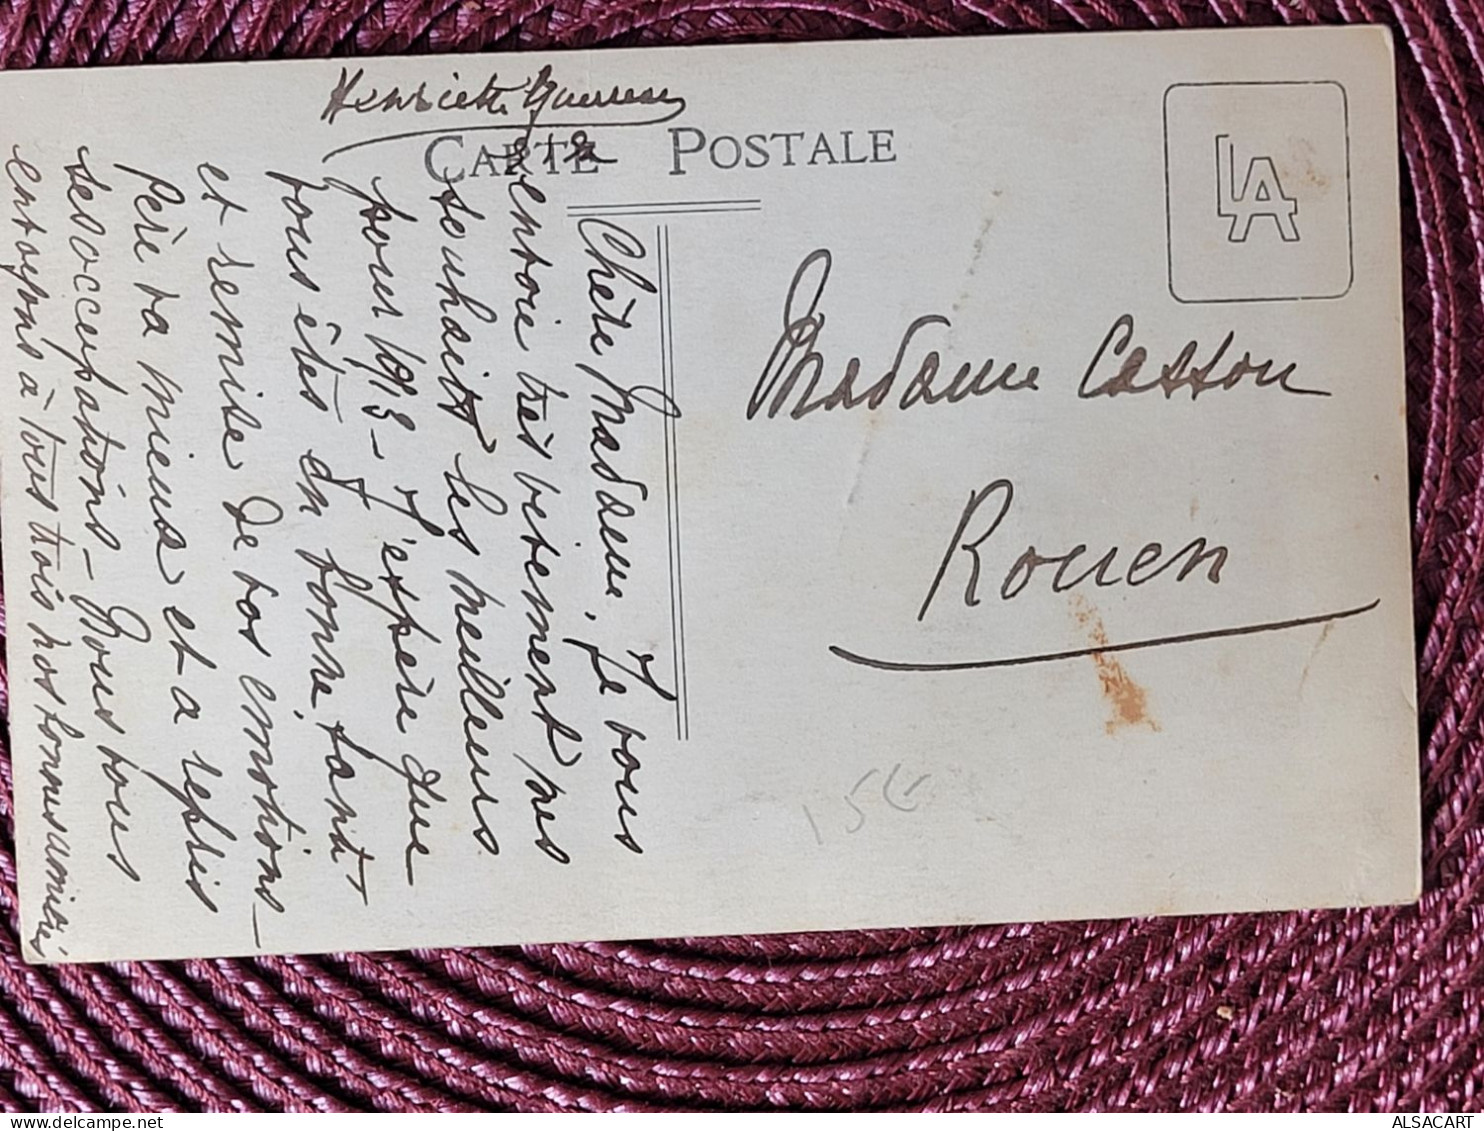 Henriette
CARTE POSTALE
LA
Madame Casson
Rouen
Chère Madame, Je vous
envoie très vivement nos
souhaits les meilleurs
pour 1913 – J'espère que
vous êtes en bonne santé
et remise de vos émotions –
Père va mieux et a repris
ses occupations – Nous vous
envoyons à tous trois nos bonnes amitiés
15€
ALSACART